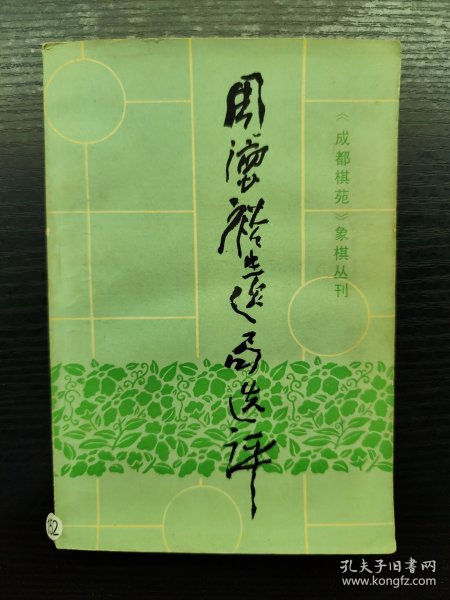 周德裕遗局选评
《成都棋苑》象棋丛刊
孔夫子旧书网
www.kongfz.com